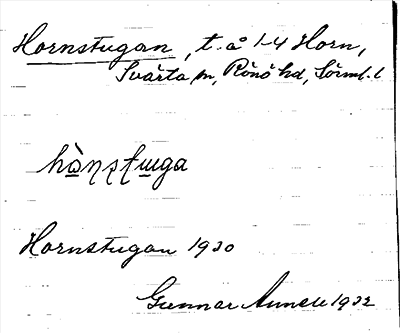 Hornstugan, t. å 1-4 Horn,
Svärta sn, Rönö hd, Sörml. l
hɑ̀ɳʂʈɯga
Hornstugan 1920
Gunnar 1922